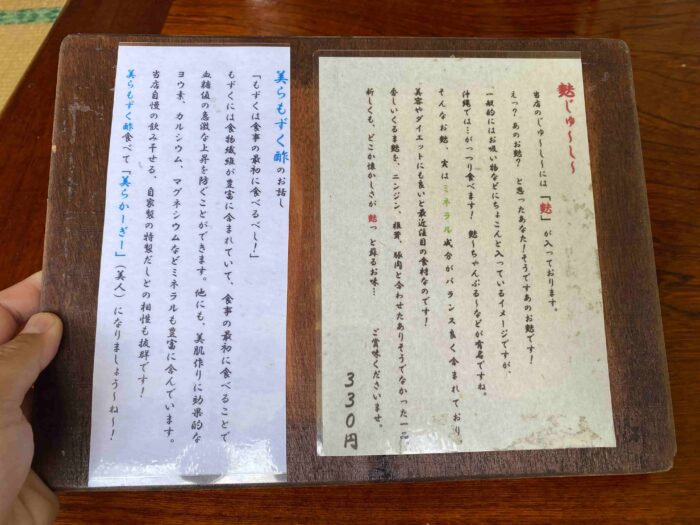 麩じゅ～し～
当店のじゅ～し～には「麩」が入っております。
えっ？あのお麩？と思ったあなた！そうですあのお麩です！
一般的にはお吸い物などにちょこんと入っているイメージですが、
沖縄では…がっつり食べます！麩～ちゃんぷる～などが有名ですね。
そんなお麩、実はミネラル成分がバランス良く含まれており、
美容やダイエットにも良いと最近注目の食材なのです！
香しいくるま麩を、ニンジン、椎茸、豚肉と合わせたありそうでなかった一品
新しくも、どこか懐かしさが麩っと蘇るお味…　ご賞味くださいませ。
330円
美らもずく酢のお話し
「もずくは食事の最初に食べるべし！」
もずくには食物繊維が豊富に含まれていて、食事の最初に食べることで
血糖値の急激な上昇を防ぐことができます。他にも、美肌作りに効果的な
ヨウ素、カルシウム、マグネシウムなどミネラルも豊富に含んでいます。
当店自慢の飲み干せる、自家製の特製だしとの相性も抜群です！
美らもずく酢食べて「美らかーぎー」（美人）になりましょう～ね～！